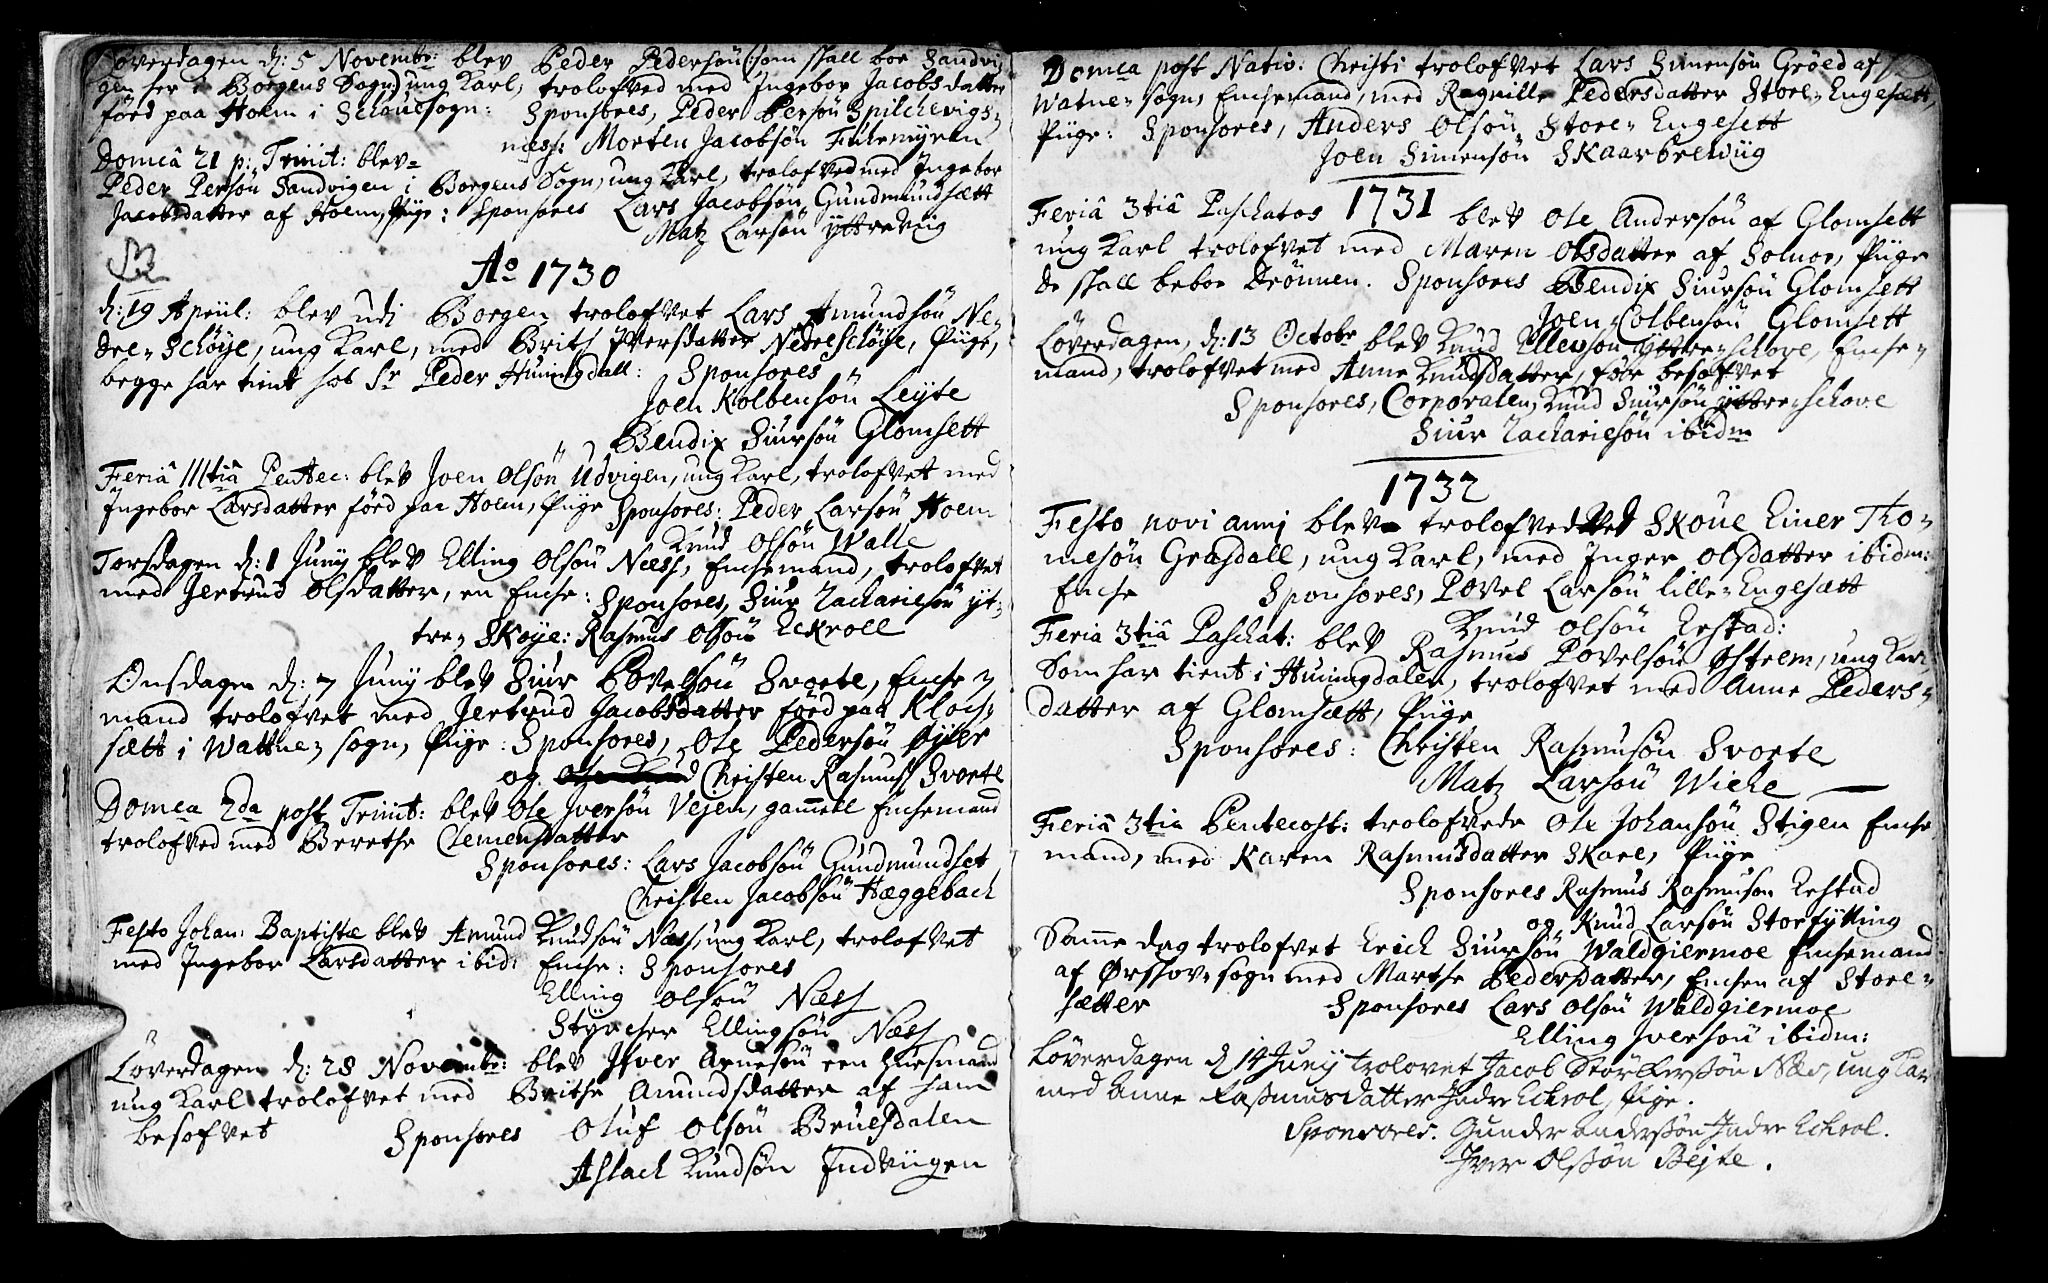 Løverdagen d: 5 Novembr: blev Peder Pedersøn (som skall boe Sandvi-
gen her i Borgens Sogn) ung Karl, trolofved med Ingebor Jacobsdatter
förd paa Holm i Schouesogn: Sponsores, Peder Persøn Spilchevigs-
næss: Morten Jacobsøn Furemyren
Domcâ 21 p: Trinit: blev
Peder Persøn Sandvigen i Borgens Sogn, ung Karl, trolofved med Ingebor
Jacobsdatter af Holm, Piige: Sponsores Lars Jacobsøn Gundmundsætt
Matz Larsøn Yttrevüg
Ao 1730
d: 19 Apriil: blev udj Borgen trolofvet Lars Amundsøn Ne-
dre-Schöye, ung Karl, med Brith Iversdatter Nedreschöye, Piige,
begge har tient hos Sr Peder Huningdall: Sponsores
Joen Kolbensön Leyte
Bendix Siursøn Glomsett
Feriâ IIItiâ Pentec: blev Joen Olsön Udvigen, ung Karl, trolofvet med
Ingebor Larsdatter förd paa Holm, Piige Sponsores: Peder Larsøn Holm
Knud Olsøn Walle
Torsdagen d: 1 Junij blev Elling Olsøn Næss, Enchemand, trolofvet
med Jertrud Olsdatter, en Enche: Sponsores, Siur Zachariesøn yt-
tre-Skoye: Rasmus Olsøn Eckroll
Onsdagen d: 7 Junij blev Siur Povelsøn Svorte, Enche-
mand trolofvet med Jertrud Jacobsdatter förd paa Kloch-
sætt i Wattne-sogn, Piige: Sponsores, Ole Pedersøn Øyler
og Christen Rasmuss Svorte
Domca 2da post Trinit: blev Ole Iversøn Vejen, gamell Enchemand
trolofved med Berethe Clemensdatter
Sponsores: Lars Jacobsøn Gundmundset
Christen Jacobsøn Hæggebach
Festo Johan: Baptistæ blev Amund Knudsøn Næss, ung Karl, trolofvet
med Ingebor Larsdatter ibid: Enche: Sponsores
Elling Olsøn Næss
Styrcher Ellingsøn Næss
Løverdagen d: 28 Novembr: blev Ifver Arnesøn een Huusmand
ung Karl trolofvet med Brithe Amundsdatter af ham
besofvet Sponsores Oluf Olsøn Bruusdalen
Aslach Knudsøn Indviigen
Domca post Nativ: Christi trolofvet Lars Simensøn Gröed af
Watne-sogn, Enchemand, med Ragnille Pedersdatter Store-Engesætt,
Piige: Sponsores, Anders Olsøn Store-Engesett
Joen Simensøn Skaarbrevüg
1731
Feriâ 3tiâ Paschatos blev Ole Andersøn af Glomsett
ung Karl trolofvet med Maren Olsdatter af Solnør, Piige
de skall beboe Drønnen. Sponsores Bendix Siursøn Glomsett
Joen Colbensøn Glomsett
Løverdagen, d: 13 Octobr blev Knud Ellevson Yttre-schove, Enche-
mand, trolofvet med Anne Knudsdatter, før besofvet
Sponsores, Corporalen, Knud Siursøn yttreschove
Siur Zachariesøn ibidm
1732
Festo novi anni blev trolofved ved Skoue Einer Tho-
mesøn Grasdall, ung Karl, med Inger Olsdatter ibidm:
Enche Sponsores, Povel Larsøn lille-Engesætt
Knud Olsøn Erstad:
Feria 3tiâ Paschat: blev Rasmus Povelsøn Østrem, ung Karl
Som har tient i Huningdalen, trolofvet med Anne Peders-
datter af Glomsætt, Piige
Sponsores: Christen Rasmusøn Svorte
Matz Larsøn Wiche
Feriâ 3tia Pentecost: trolofvede Ole Johansøn Stigen Enche
mand, med Karen Rasmusdatter Skare, Piige
Sponsores Rasmus Rasmusøn Erstad
og Knud Larsøn Storfytling
Samme dag trolofvet Erich Siursøn Waldgiermoe Enchemand
af Ørschov-sogn med Marthe Pedersdatter, Enchen af Store-
sætter Sponsores Lars Olsøn Waldgiermoe
Elling Iversøn ibidm:
Løverdagen d 14 Junij trolovet Jacob Störkerssøn Næs, ung Karl
med Anne Rasmusdatter Indre Echrol, Pige.
Sponsores. Gunder anderssøn Indre Echrol.
Iver Olssøn Bejte.